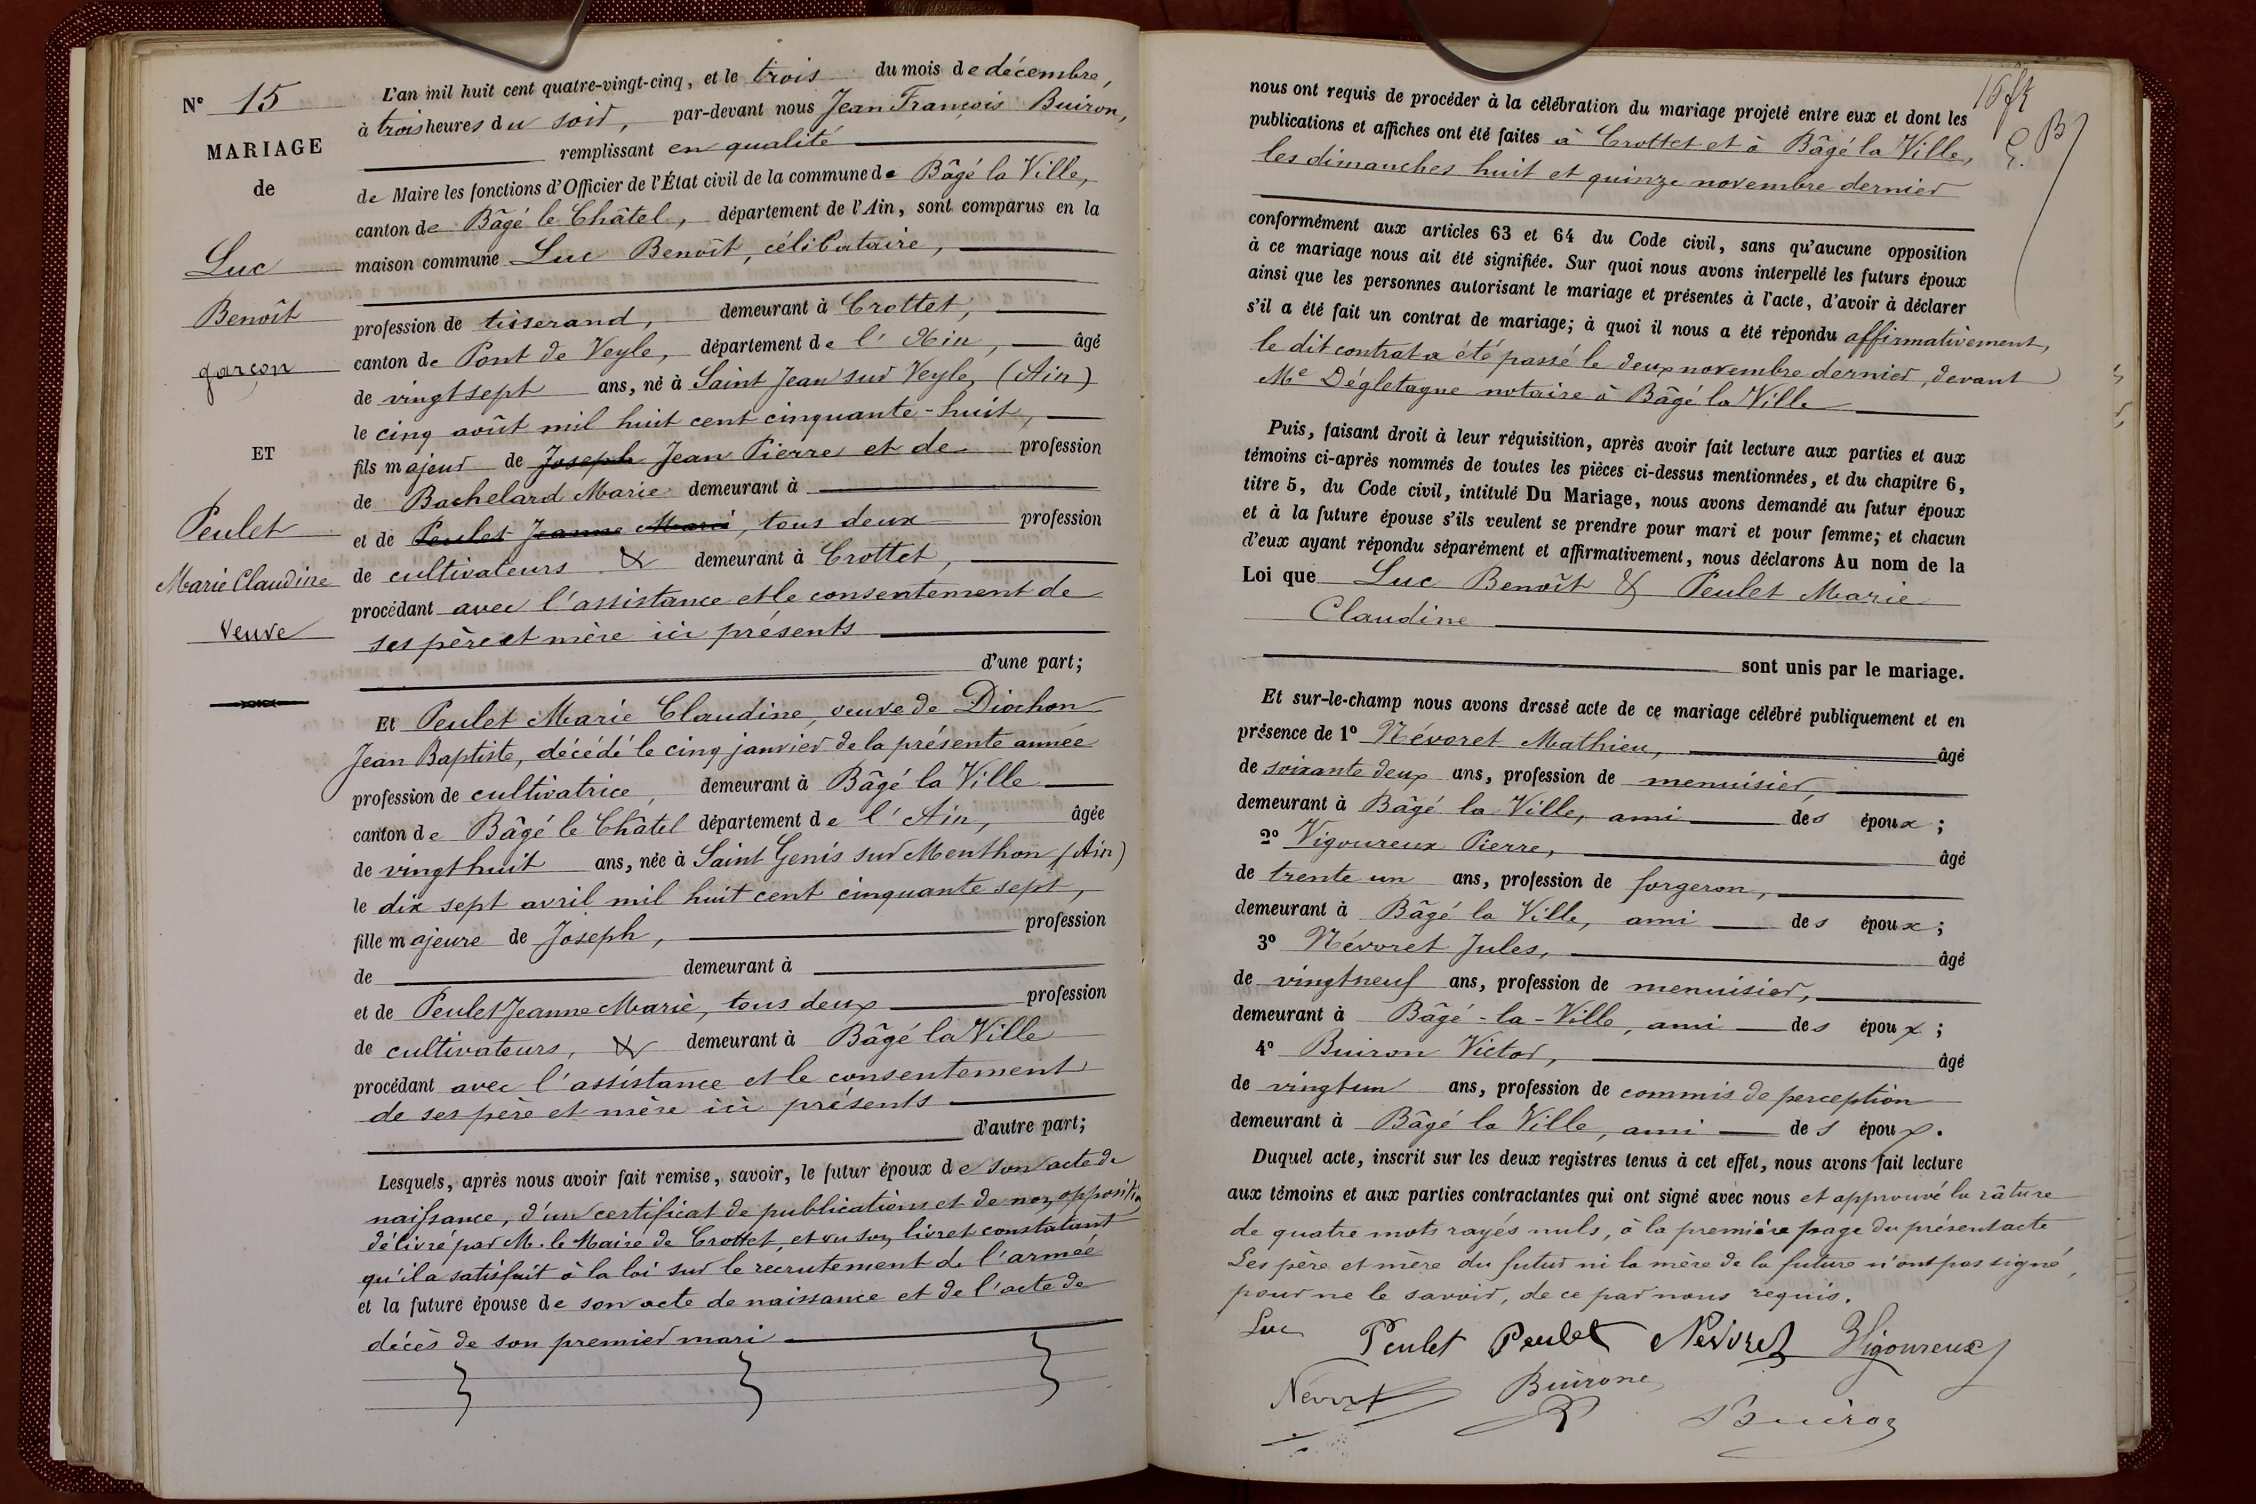 N° 15
MARIAGE
de
Luc
Benoît
garçon
ET
Peulet
Marie Claudine
Veuve
L'an mil huit cent quatre-vingt-cinq, et le trois du mois de décembre,
à trois heures du soir, par-devant nous Jean François Buiron,
remplissant en qualité
de Maire les fonctions d'Officier de l'État civil de la commune de Bâgé la Ville,
canton de Bâgé le Châtel, département de l'Ain, sont comparus en la
maison commune Luc Benoît, célibataire,
profession de tisserand, demeurant à Crottet,
canton de Pont de Veyle, département de l'Ain, âgé
de vingt sept ans, né à Saint Jean sur Veyle, (Ain)
le cinq août mil huit cent cinquante-huit,
fils majeur de Joseph Jean Pierre et de profession
de Bachelard Marie demeurant à
et de Peulet Jeanne Marie, tous deux profession
de cultivateurs & demeurant à Crottet,
procédant avec l'assistance et le consentement de
ses père et mère ici présents
d'une part;
Et Peulet Marie Claudine, veuve de Diochon
Jean Baptiste, décédé le cinq janvier de la présente année
profession de cultivatrice, demeurant à Bâgé la Ville
canton de Bâgé le Châtel département de l'Ain, âgée
de vingt huit ans, née à Saint Genis sur Menthon (Ain)
le dix sept avril mil huit cent cinquante sept,
fille majeure de Joseph, profession
de demeurant à
et de Peulet Jeanne Marie, tous deux profession
de cultivateurs, & demeurant à Bâgé la Ville
procédant avec l'assistance et le consentement
de ses père et mère ici présents
d'autre part;
Lesquels, après nous avoir fait remise, savoir, le futur époux de son acte de
naissance, d'un certificat de publications et de non opposition
délivré par M. le Maire de Crottet, et vu son livret constatant
qu'il a satisfait à la loi sur le recrutement de l'armée
et la future épouse de son acte de naissance et de l'acte de
décès de son premier mari
nous ont requis de procéder à la célébration du mariage projeté entre eux et dont les
publications et affiches ont été faites à Crottet et à Bâgé la Ville,
les dimanches huit et quinze novembre dernier
conformément aux articles 63 et 64 du Code civil, sans qu'aucune opposition
à ce mariage nous ait été signifiée. Sur quoi nous avons interpellé les futurs époux
ainsi que les personnes autorisant le mariage et présentes à l'acte, d'avoir à déclarer
s'il a été fait un contrat de mariage; à quoi il nous a été répondu affirmativement,
le dit contrat a été passé le deux novembre dernier, devant
Me Dégletagne notaire à Bâgé la Ville
Puis, faisant droit à leur réquisition, après avoir fait lecture aux parties et aux
témoins ci-après nommés de toutes les pièces ci-dessus mentionnées, et du chapitre 6,
titre 5, du Code civil, intitulé Du Mariage, nous avons demandé au futur époux
et à la future épouse s'ils veulent se prendre pour mari et pour femme; et chacun
d'eux ayant répondu séparément et affirmativement, nous déclarons Au nom de la
Loi que Luc Benoît & Peulet Marie
Claudine
sont unis par le mariage.
Et sur-le-champ nous avons dressé acte de ce mariage célébré publiquement et en
présence de 1° Névoret Mathieu, âgé
de soixante deux ans, profession de menuisier,
demeurant à Bâgé la Ville, ami des époux;
2° Vigoureux Pierre, âgé
de trente un ans, profession de forgeron,
demeurant à Bâgé la Ville, ami des époux;
3° Névoret Jules, âgé
de vingt neuf ans, profession de menuisier,
demeurant à Bâgé-la-Ville, ami des époux;
4° Buiron Victor, âgé
de vingt un ans, profession de commis de perception
demeurant à Bâgé la Ville, ami des époux.
Duquel acte, inscrit sur les deux registres tenus à cet effet, nous avons fait lecture
aux témoins et aux parties contractantes qui ont signé avec nous et approuvé la râture
de quatre mots rayés nuls, à la première page du présent acte
Les père et mère du futur ni la mère de la future n'ont pas signé,
pour ne le savoir, de ce par nous requis.
Luc Peulet Peulet Névoret Vigoureux
Névoret Buiron
Buiron